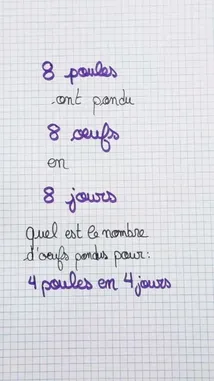 8 poules
ont pondu
8 œufs
en
8 jours
Quel est le nombre
d'œufs pondus pour :
4 poules en 4 jours